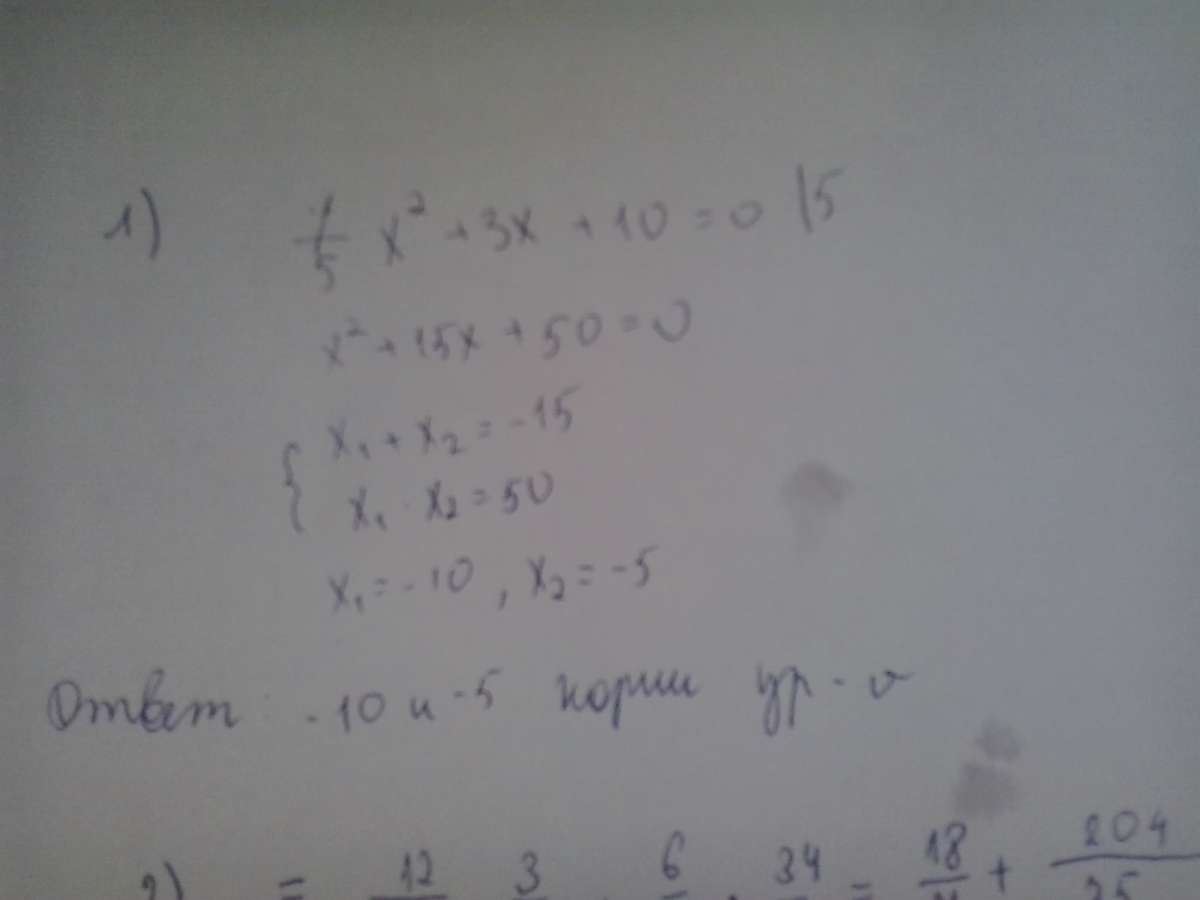 1) 1/5 x² + 3x + 10 = 0 |5
x² + 15x + 50 = 0
{ x₁ + x₂ = -15
x₁ · x₂ = 50
x₁ = -10, x₂ = -5
Ответ: -10 и -5 корни ур-
2) = 12 3 6 · 34 = 18 + 204/25